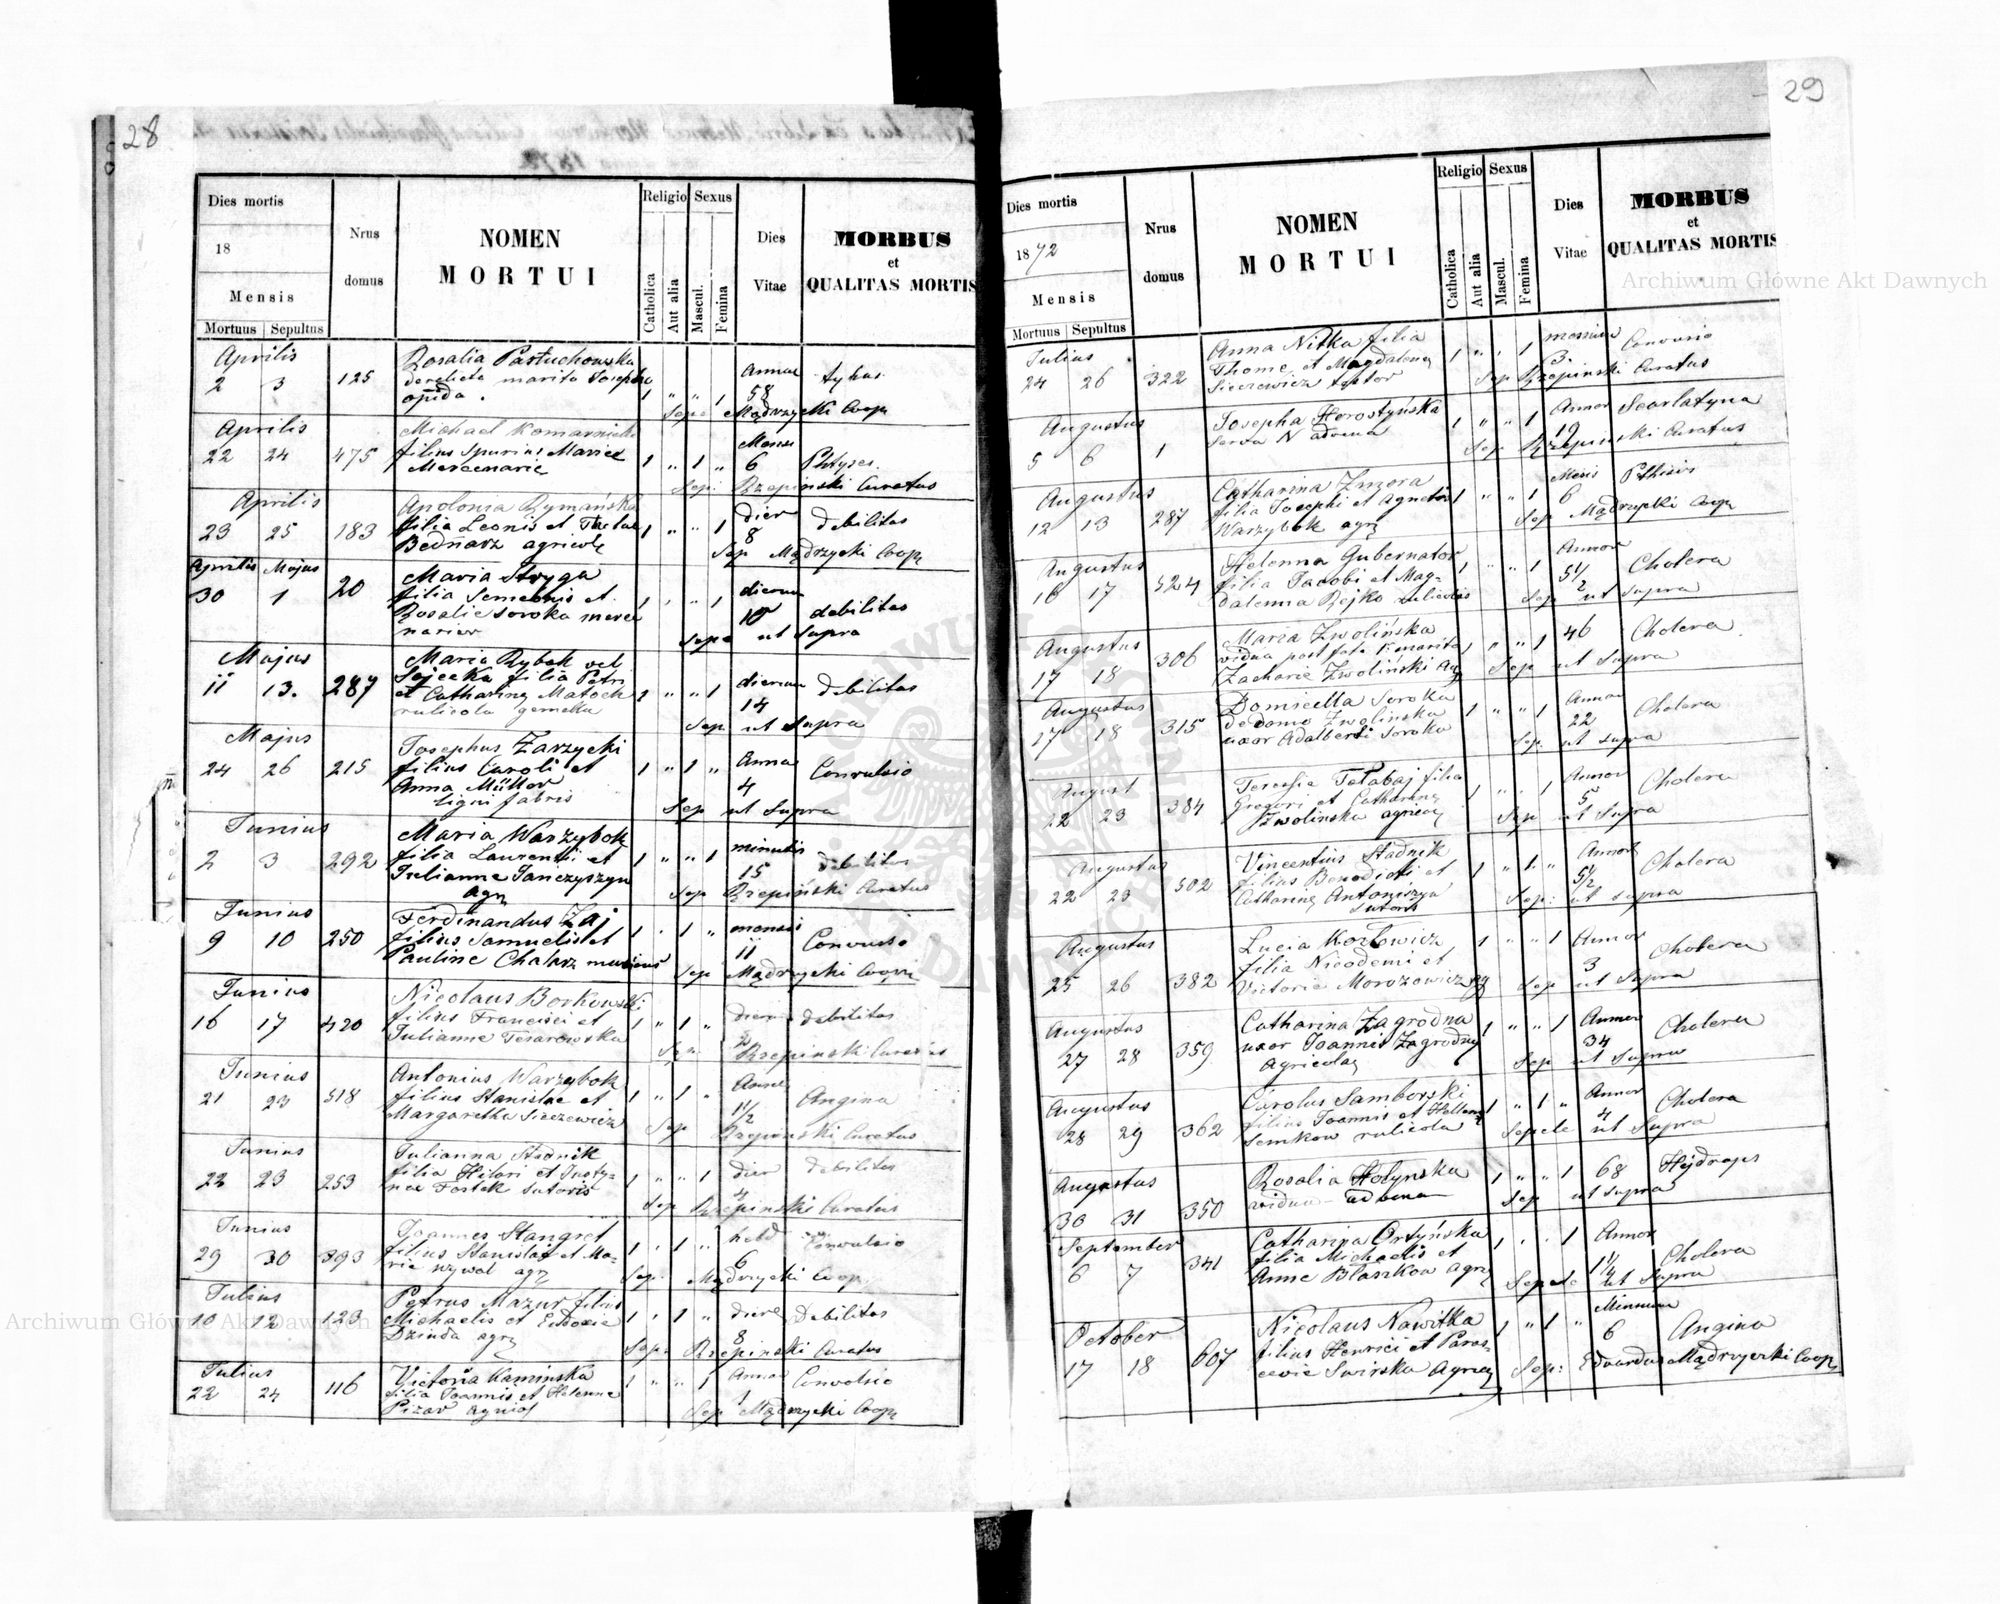 28
Dies mortis
18
Mensis
Mortuus Sepultus
Nrus domus
NOMEN MORTUI
Religio
Catholica
Aut alia
Sexus
Mascul.
Femina
Dies Vitae
MORBUS
et
QUALITAS MORTIS
Aprilis
2 3 125 Rosalia Pastuchowska 1 " " 1 58 typus
derelicta marito Josepho
Sep: Mądrzycki Coop
Aprilis
22 24 475 Michael Komarnicki 1 " 1 " 6 Phtyses.
filius spurius Mariae
Mercenarie
Sep: Rzepinski Curatus
Aprilis
23 25 183 Apolonia Rymańska 1 " " 1 dier 8 debilitas
filia Leonis et Theclae
Bednarz agricolę
Sep Mądrzycki Coop
Aprilis Majus
30 1 20 Maria Stryga 1 " " 1 dierum 10 debilitas
filia Semeonis et
Rosalie Soroka
ut Supra
Majus
11 13. 287 Maria Rybak vel 1 " " 1 dierum 14 debilitas
filia Petri
et Catharinę Matoch
rulicola gemelka
Sep ut Supra
Majus
24 26 215 Josephus Zarzycki 1 " 1 " Anna 4 Convulsio
filius Caroli et
Anna Müller
ligni fabris
Sep ut Supra
Junius
2 3 292 Maria Warzybok 1 " " 1 minutis 15 debilitas
filia Laurentii et
Julianne Janczyszyn
agrę
Sep Rzepiński Curatus
Junius
9 10 250 Ferdinandus Zaj 1 " 1 " mensis 11 Convulsio
filius Samuelis et
Pauline Chalarz
Sep Mądrzycki Coop
Junius
16 17 420 Nicolaus Borkowski 1 " 1 " dier 2 debilitas
filius Francisci et
Julianne Tesarowska
Sep Rzepinski Curatus
Junius
21 23 518 Antonius Warzybok 1 " 1 " 1 1/2 Angina
filius Stanislae et
Margaretha Siczewicz
Sep Rzepinski Curatus
Junius
22 23 253 Julianna Stadnik 1 " " 1 dier 4 debilitas
filia Hilari et
Fostek Sutoris
Sep Rzepinski Curatus
Junius
29 30 393 Joannes Stangret 1 " 1 " hebd 6 Convulsio
filius Stanislai et Ma-
rie Wywal agrę
Sep: Mądrzycki Coop.
Julius
10 12 123 Petrus Mazur filius 1 " 1 " diere 8 Debilitas
Michaelis et Eudoxie
Dziuda agrę
Sep: Rzepinski Curatus
Julius
22 24 116 Victoria Kaminska 1 " " 1 1 Convolsio
filia Joannis et Helenne
Pizar
Sep Mądrzycki Coop
29
Dies mortis
1872
Mensis
Mortuus Sepultus
Nrus domus
NOMEN MORTUI
Religio
Catholica
Aut alia
Sexus
Mascul.
Femina
Dies Vitae
MORBUS
et
QUALITAS MORTIS
Julius
24 26 322 Anna Nitka filia 1 " " 1 3. Convusio
Thome et Magdalenę
Siczewicz textor
Sep Rzepinski Curatus
Augustus
5 6 1 Josepha Horostyńska 1 " " 1 Annor 19 Scarlatyna
serva N advena
Sep Rzepinski Curatus
Augustus
12 13 287 Catharina Zmzora 1 " " 1 Mesis 6 Pthisis
filia Josephi et Agnetis
Warzybok agrę
Sep Mądrzycki Coop
Augustus
16 17 524 Helenna Gubernator 1 " " 1 Annor 5 1/2 Cholera
filia Jacobi et Mag-
dalenna Rejko rulicolis
Sep ut supra
Augustus
17 18 306 Maria Zwolińska 1 " " 1 46 Cholera
vidua post fata marito
Zacharie Zwoliński Ag
Sep ut supra
Augustus
17 18 315 Domicella Soroka 1 " " 1 Annor 22 Cholera
de domo Zwolińska
uxor Adalberti Soroka
Sep. ut supra
August
22 23 384 Teressie Tatabaj filia 1 " " 1 Annor 5 Cholera
Gregori et Catharinę
Zwolinska
Sep ut Supra
Augustus
22 23 502 Vincentius Stadnik 1 " 1 " Annor 5 1/2 Cholera
filius Benedicti et
Catharinę Antoniszyn
Sutoris
Sep: ut supra
Augustus
25 26 382 Lucia Kozlowicz 1 " " 1 Annor 3 Cholera
filia Nicodemi et
Victorie Morozowicz ag
Sep ut Supra
Augustus
27 28 359 Catharina Zagrodna 1 " " 1 Annor 34 Cholera
uxor Joannis Zagrodny
Agricolaę
Sep ut Supra
Augustus
28 29 362 Carolus Samborski 1 " 1 " Annor 4 Cholera
filius Joannis et Hellenę
Semkow rulicola
Sepele ut Supra
Augustus
30 31 350 Rosalia Hołynska 1 " " 1 68 Hejdrops
vidua advena
Sep ut supra
September
6 7 341 Catharina Ortyńska 1 " " 1 Annor 1 1/4 Cholera
filia Michaelis et
Anne Błaszkow agrę
Sepele ut Supra
October
17 18 607 Nicolaus Nawitka 1 " 1 " 6 Angina
filius Henrici et Paras-
cevie Swirska Agricę
Sep: Eduardus Mądrzycki Coop
Archiwum Główne Akt Dawnych
Archiwum Główne Akt Dawnych
ARCHIWUM GŁÓWNE AKT DAWNYCH